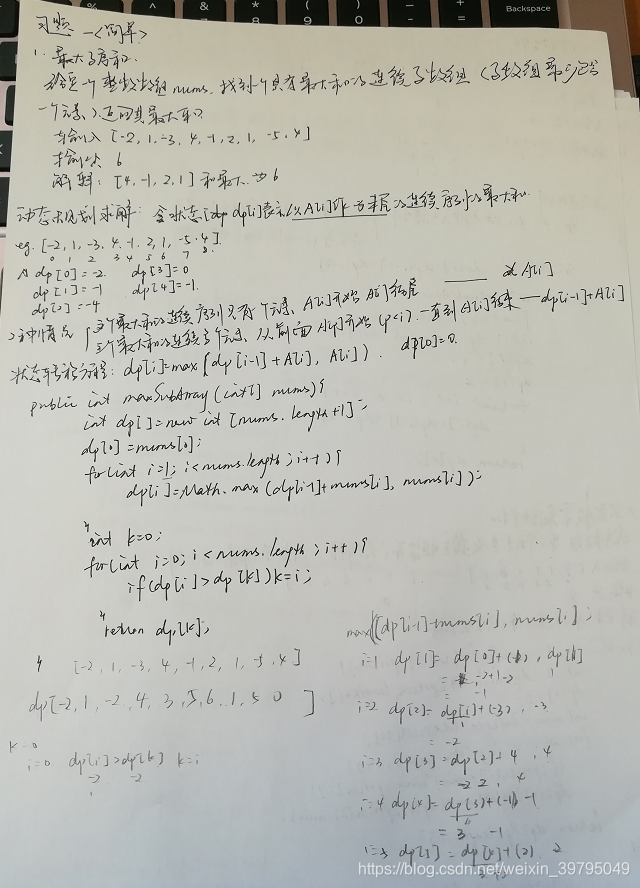 Backspace
习题一<简单>
1. 最大子序和.
给定一个整数数组nums,找到一个具有最大和的连续子数组(子数组最少包含
一个元素),返回其最大和.
输入[-2,1,-3,4,-1,2,1,-5,4]
输出: 6
解释: [4,-1,2,1]和最大,为6
动态规划求解: 令状态dp dp[i]表示以A[i]作为末尾的连续序列的最大和.
eg. [-2,1,-3,4,-1,2,1,-5,4].
0 1 2 3 4 5 6 7 8.
dp[0]=-2 dp[3]=0
dp[1]=-1 dp[4]=-1.
dp[2]=-4
2种情况 { 这个最大和的连续序列只有一个元素, A[i]开始A[i]结尾 —— A[i]
这个最大和的连续多个元素, 从前面A[p]开始(p<i).一直到A[i]结束—dp[i-1]+A[i]
状态转移方程: dp[i]=max{dp[i-1]+A[i], A[i]}. dp[0]=0.
public int maxSubArray(int[] nums){
int dp[]=new int[nums.length+1];
dp[0]=nums[0];
for(int i=1; i<nums.length; i++){
dp[i]=Math.max(dp[i-1]+nums[i], nums[i]);
}
int k=0;
for(int i=0; i<nums.length; i++){
if(dp[i]>dp[k])k=i;
}
return dp[k];
}
[-2,1,-3,4,-1,2,1,-5,4]
dp[-2,1,-2,4,3,5,6,1,5 0 ]
k=0
i=0 dp[i]>dp[k] k=i
-2 -2
1
max([dp[i-1]+nums[i], nums[i];
i=1 dp[1]= dp[0]+(1), dp[1]
-2+1
= -1
i=2 dp[2]= dp[1]+(-3), -3
= -2
i=3 dp[3]=dp[2]+4, 4
= 2, 4
i=4 dp[4]=dp[3]+(-1) -1
= 3 -1
i=5 dp[5]=dp[4]+(2) 2
https://blog.csdn.net/weixin_39795049